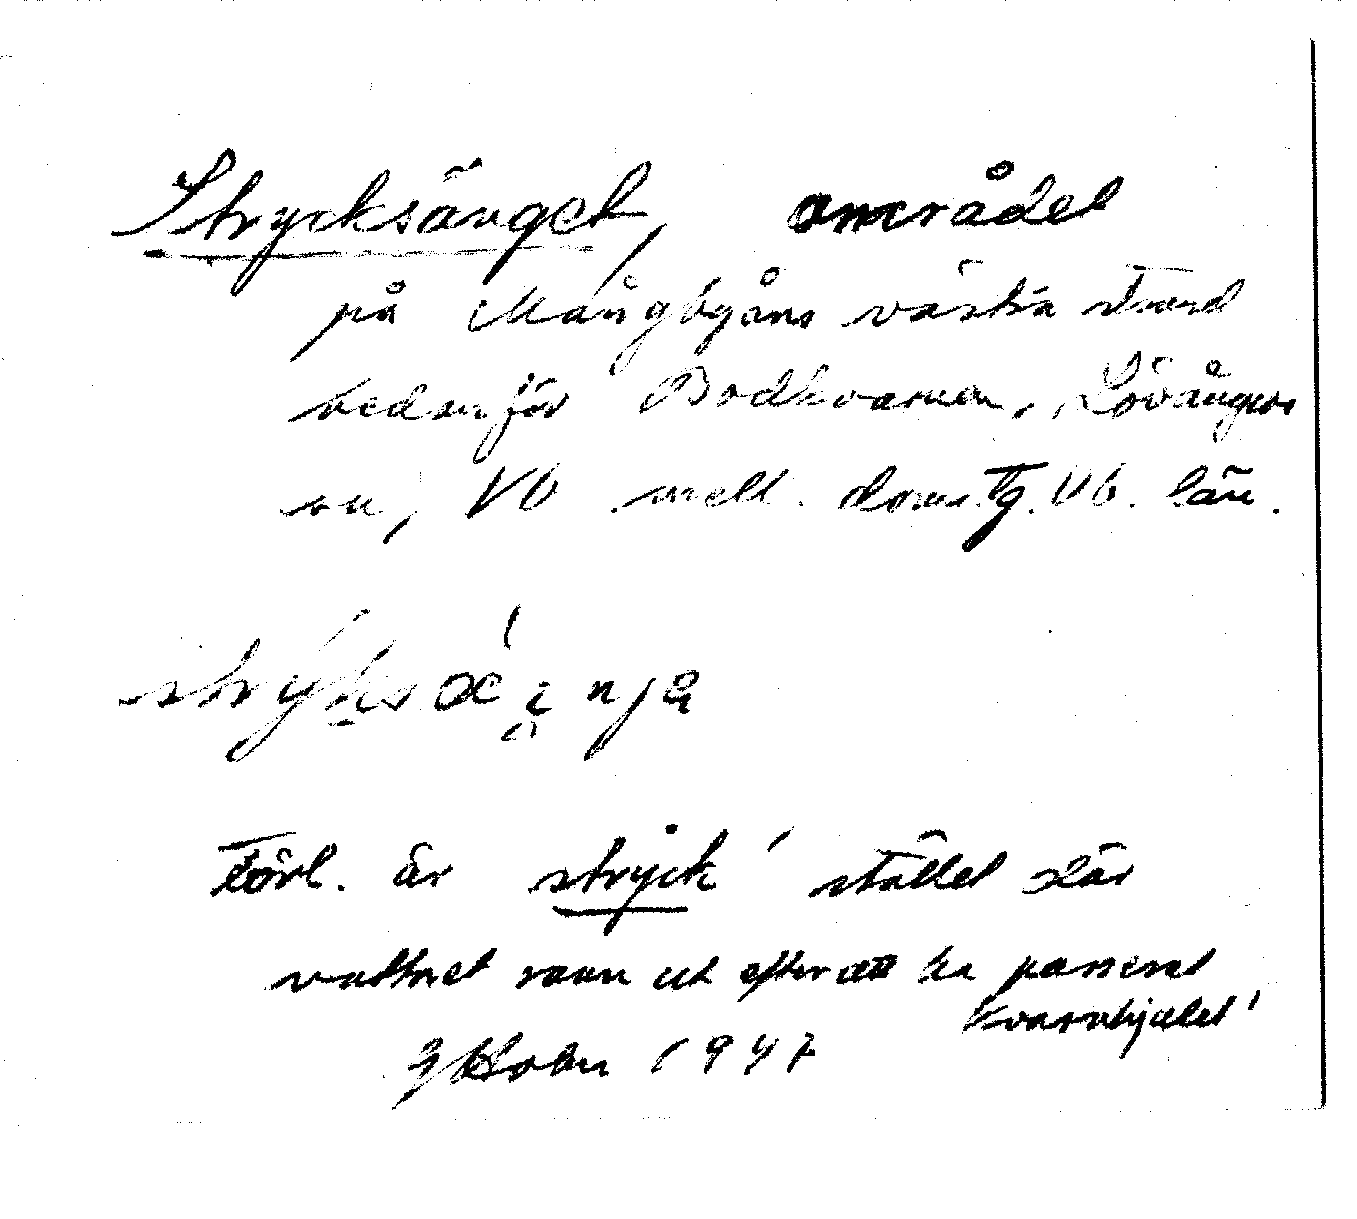 Strycksänget, området
på Mångbyåns västra strand
nedanför Bodkvarnen, Lövångers
sn, Vb mell. doms.tg. Vb. län.
Förl. är stryck ' stället där
vattnet rann ut efter att ha passerat
kvarnhjulet '
Holm 1947